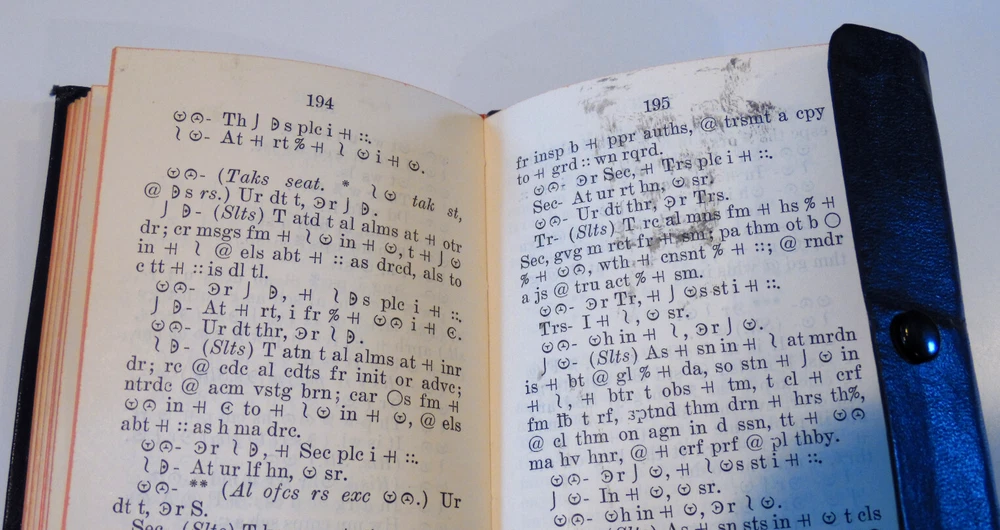 194
☉☉- Th J Ꭰ s plc i ╫ ::.
⟅ ☉- At ╫ rt % ╫ ⟅ ☉ i ╫ ☉.
☉☉- (Taks seat. * ⟅ ☉ tak st,
@ Ꭰ s rs.) Ur dt t, Ɔr J Ꭰ.
J Ꭰ- (Slts) T atd t al alms at ╫ otr
dr; cr msgs fm ╫ ⟅ ☉ in ╫ ☉, t ╫ J ☉
in ╫ ⟅ @ els abt ╫ :: as drcd, als to
c tt ╫ :: is dl tl.
☉☉- Ɔr J Ꭰ, ╫ ⟅ Ꭰ s plc i ╫ ::.
J Ꭰ- At ╫ rt, i fr % ╫ ☉☉ i ╫ Є.
☉☉- Ur dt thr, Ɔr ⟅ Ꭰ.
⟅ Ꭰ- (Slts) T atn t al alms at ╫ inr
dr; rc @ cdc al cdts fr init or advc;
ntrdc @ acm vstg brn; car ◯s fm ╫
☉☉ in ╫ Є to ╫ ⟅ ☉ in ╫ ☉, @ els
abt ╫ :: as h ma drc.
☉☉- Ɔr ⟅ Ꭰ, ╫ Sec plc i ╫ ::.
⟅ Ꭰ- At ur lf hn, ☉ sr.
☉☉- ** (Al ofcs rs exc ☉☉.) Ur
dt t, Ɔr S.
Sec- (Slts) T
195
fr insp b ╫ ppr auths, @ trsmt a cpy
to ╫ grd :: wn rqrd.
☉☉- Ɔr Sec, ╫ Trs plc i ╫ ::.
Sec- At ur rt hn, ☉ sr.
☉☉- Ur dt thr, Ɔr Trs.
Tr- (Slts) T rc al mns fm ╫ hs % ╫
Sec, gvg m rct fr ╫ sm; pa thm ot b ◯
% ╫ ☉☉, wth ╫ cnsnt % ╫ ::; @ rndr
a js @ tru act % ╫ sm.
☉☉- Ɔr Tr, ╫ J ☉s st i ╫ ::.
Trs- I ╫ ⟅, ☉ sr.
☉☉- ☉h in ╫ ⟅, Ɔr J ☉.
J ☉- (Slts) As ╫ sn in ╫ ⟅ at mrdn
is ╫ bt @ gl % ╫ da, so stn ╫ J ☉ in
╫ ⟅, ╫ btr t obs ╫ tm, t cl ╫ crf
fm lb t rf, sptnd thm drn ╫ hrs th%,
@ cl thm on agn in d ssn, tt ╫ ☉☉
ma hv hnr, @ ╫ crf prf @ pl thby.
☉☉- Ɔr J ☉, ╫ ⟅ ☉s st i ╫ ::.
J ☉- In ╫ ☉, ☉ sr.
☉☉- ☉h in ╫ ☉, Ɔr ⟅ ☉.
As ╫ sn sts in ╫ ☉ t cls